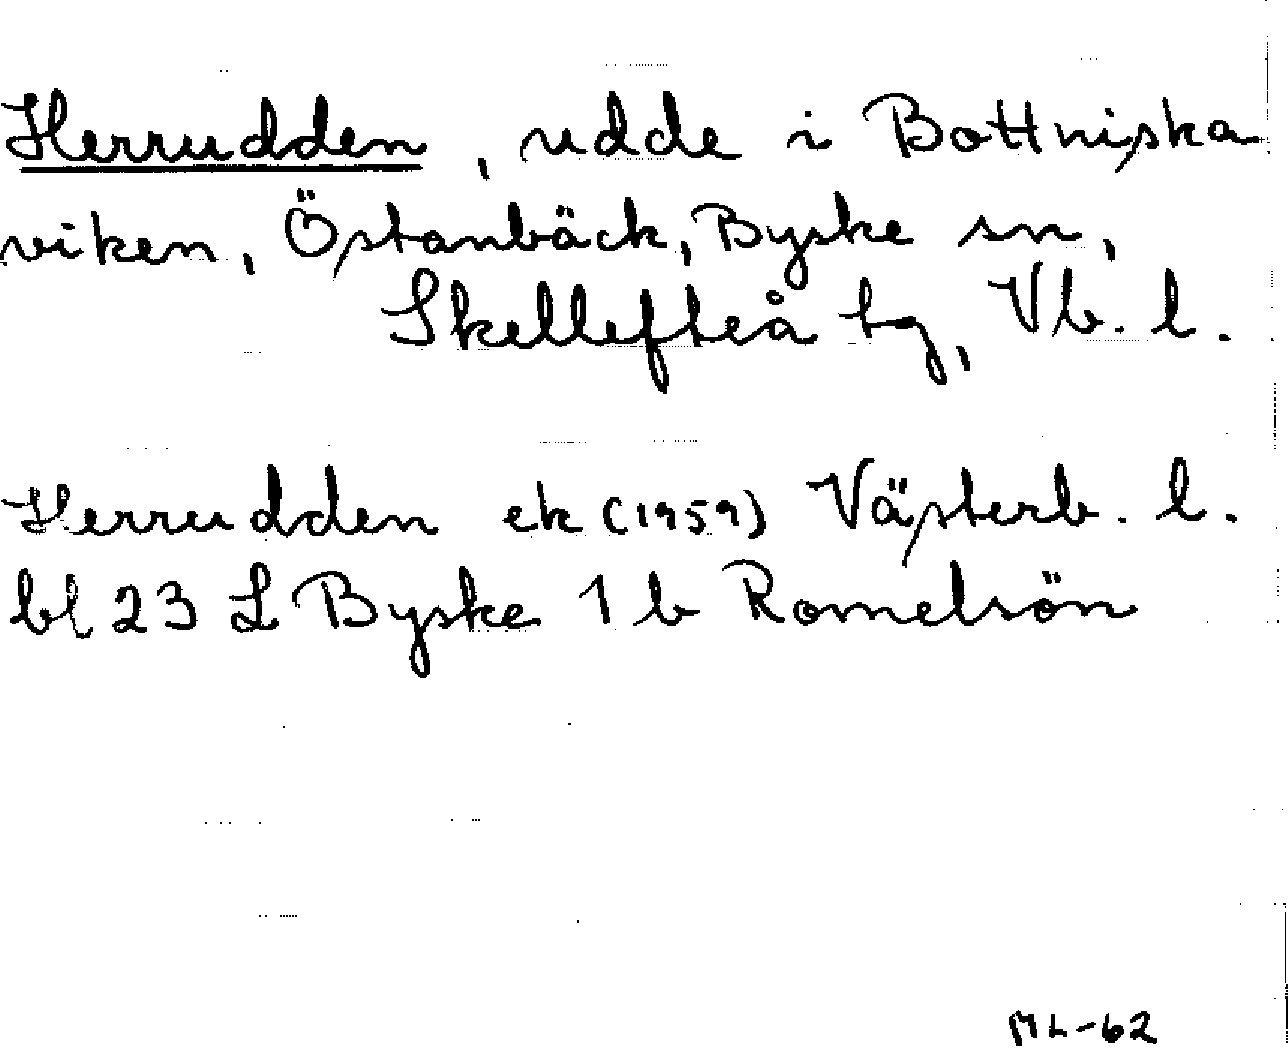 Herrudden, udde i Bottniska
viken, Östanbäck, Byske sn,
Skellefteå tg, Vb. l.
Herrudden ek (1959) Västerb. l.
bl 23 L Byske 1 b Romelsön
ML-62